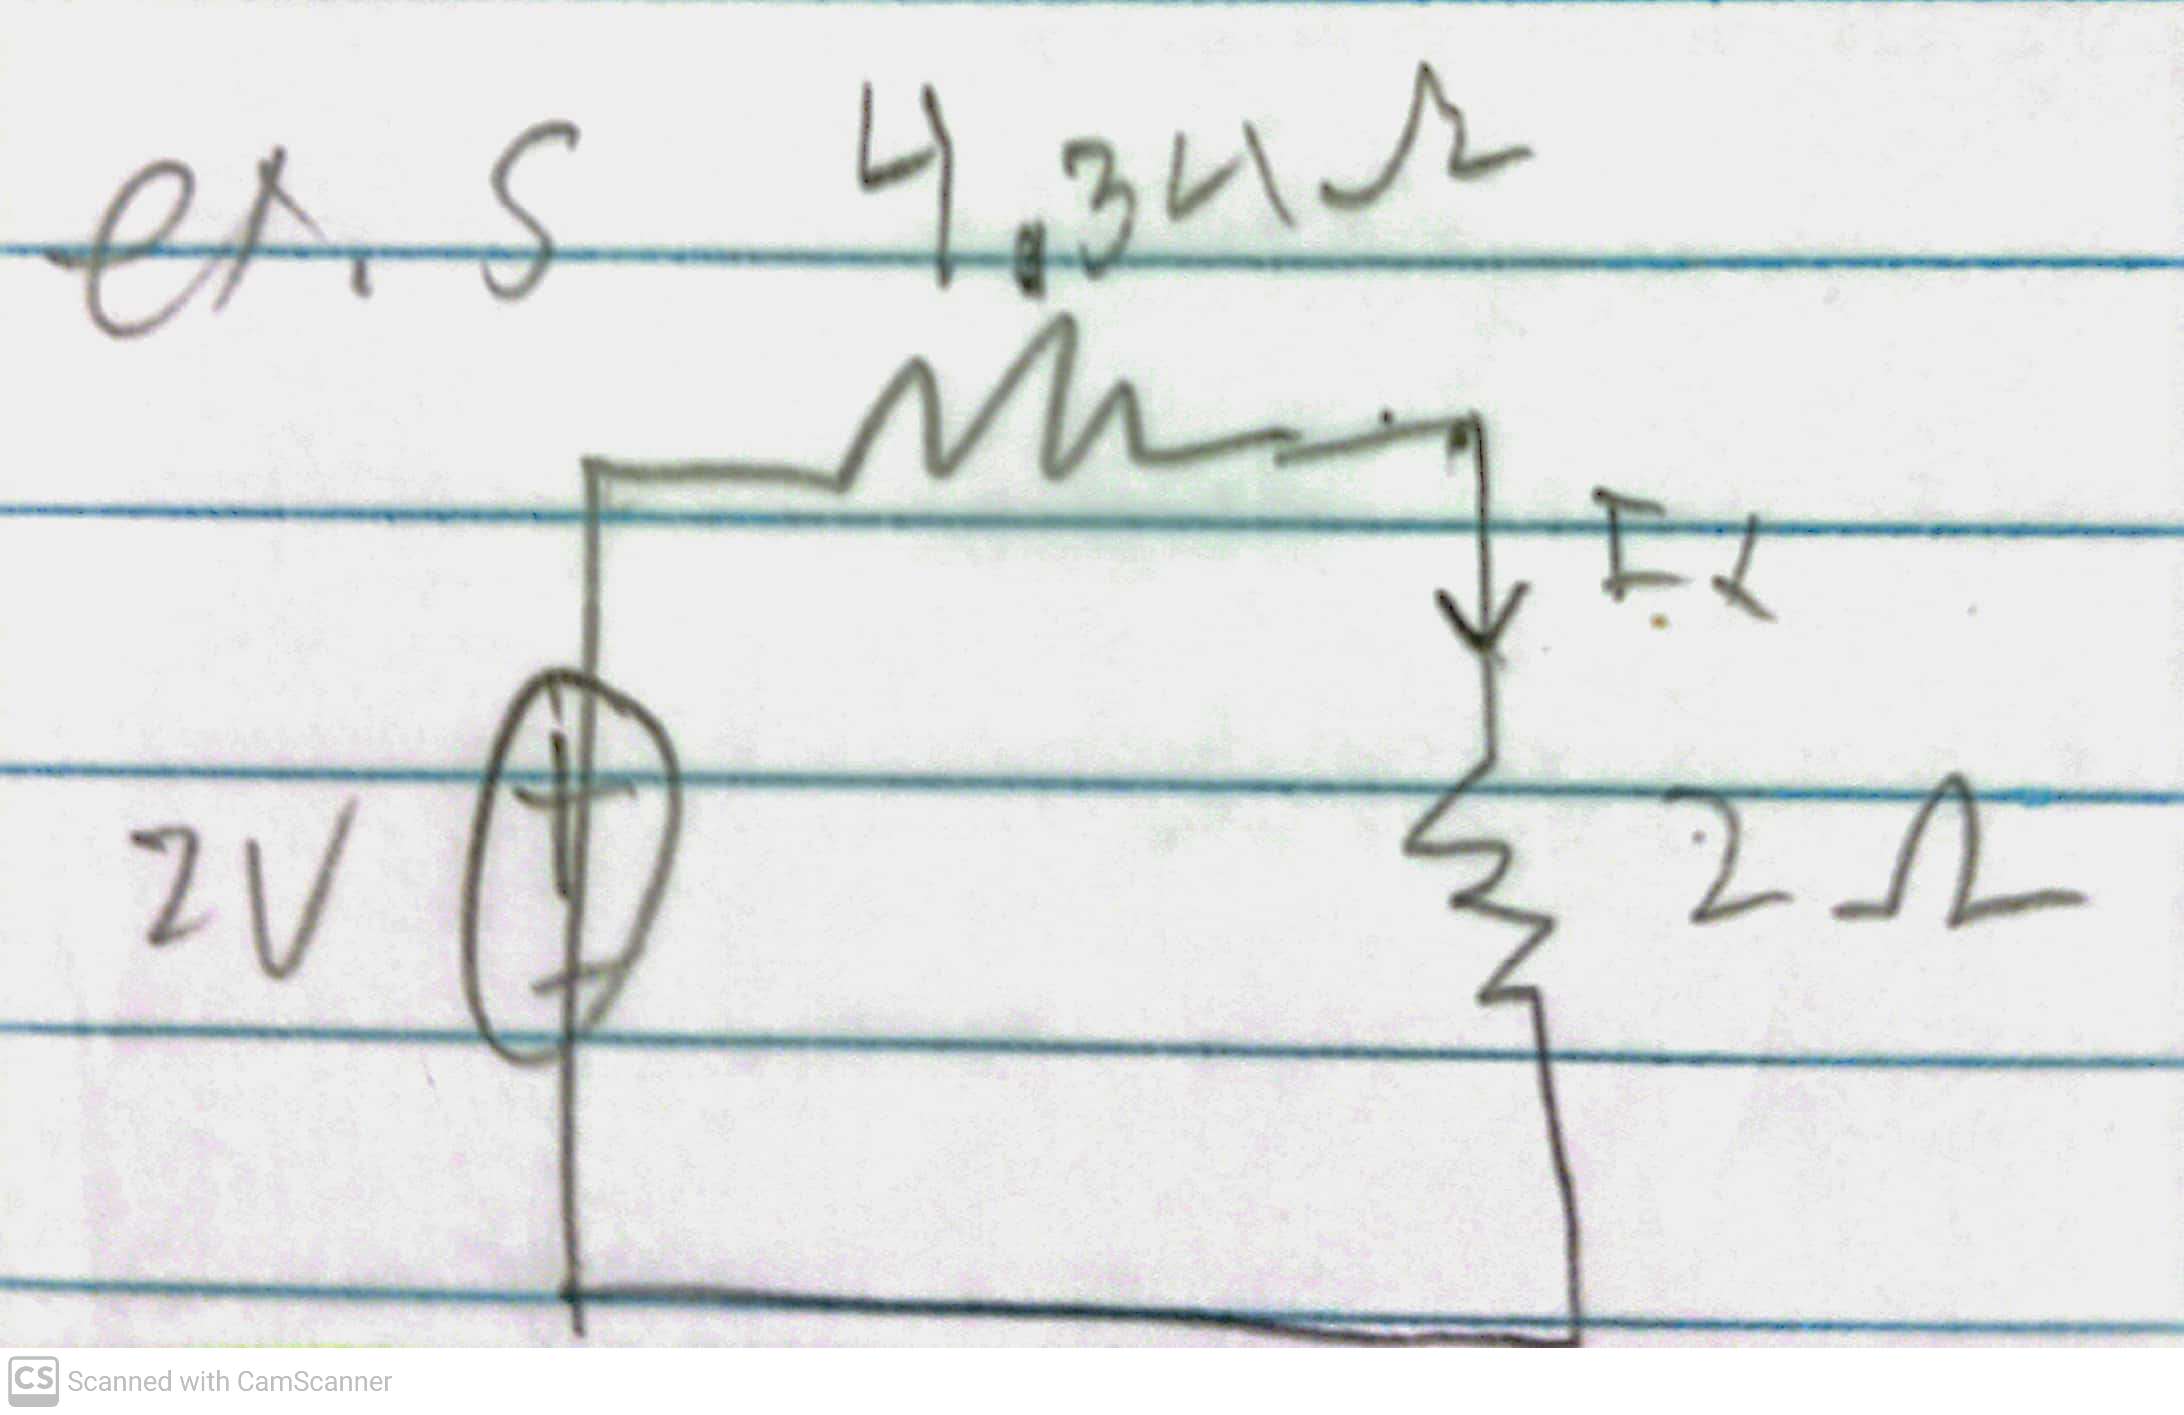 ex. 5 4.34Ω
Ix
2V 2Ω
CS Scanned with CamScanner